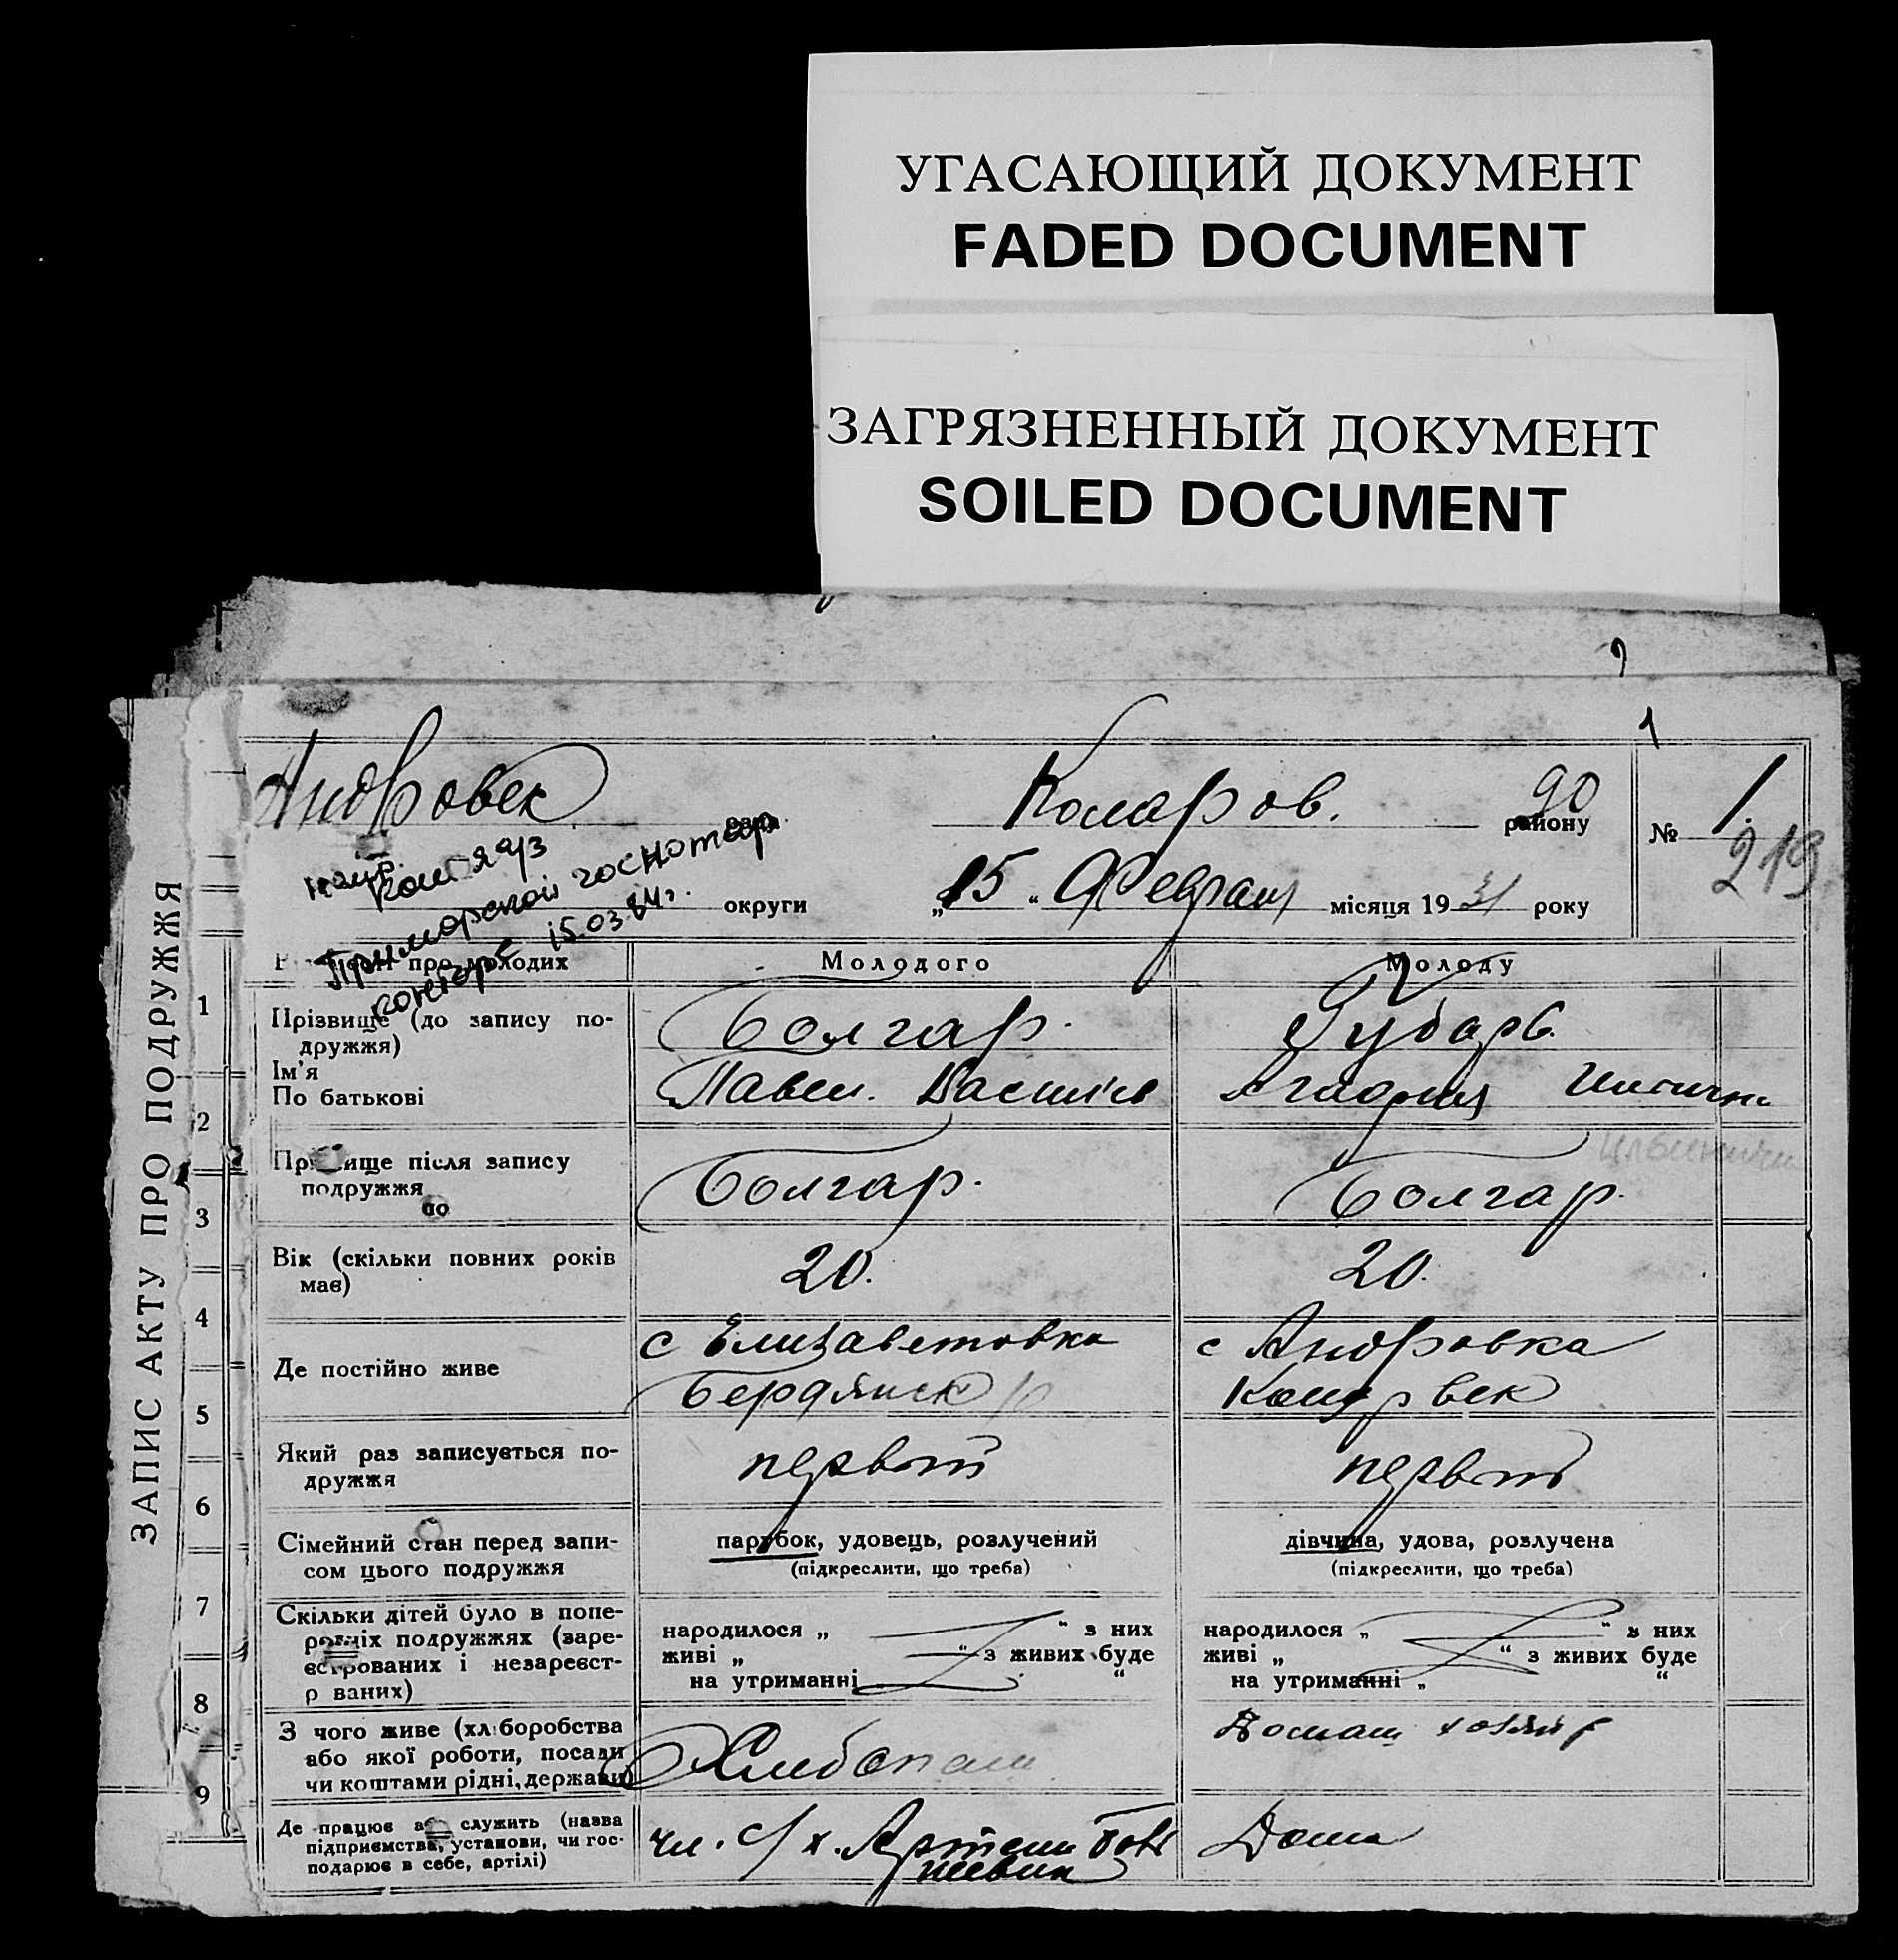 УГАСАЮЩИЙ ДОКУМЕНТ
FADED DOCUMENT
ЗАГРЯЗНЕННЫЙ ДОКУМЕНТ
SOILED DOCUMENT
1
Андровск Коларов. району 90
№ 1.
219
Приморской госнотар
конторе 15.03.84г.
округи „15“ Февраля місяця 1931 року
ЗАПИС АКТУ ПРО ПОДРУЖЖЯ
про молодих Молодого Молоду
1 Прізвище (до запису по-
дружжя) Болгар. Губарь
Ім'я
По батькові Павел. Васильев Агафия
2 Прізвище після запису
подружжя Болгар. Болгар.
3 Вік (скільки повних років
має) 20. 20.
4 Де постійно живе с Елизаветовка с Андровка
Бердянск р
5 Який раз записується по-
дружжя первый первый
6 Сімейний стан перед запи-
сом цього подружжя парубок, удовець, розлучений дівчина, удова, розлучена
(підкреслити, що треба) (підкреслити, що треба)
7 Скільки дітей було в попе-
редніх подружжях (заре-
єстрованих і незареєст-
р ваних)
народилося „ “ з них народилося „ “ з них
живі „ “ з живих буде живі „ “ з живих буде
на утриманні „ “ на утриманні „ “
8 З чого живе (хліборобства
або якої роботи, посади
чи коштами рідні, держави) Хлебопаш Домаш хозяй
9 Де працює або служить (назва
підприємства, установи, чи гос-
подарює в себе, артілі) чл. с/х. Артели Боль
шевик Дома